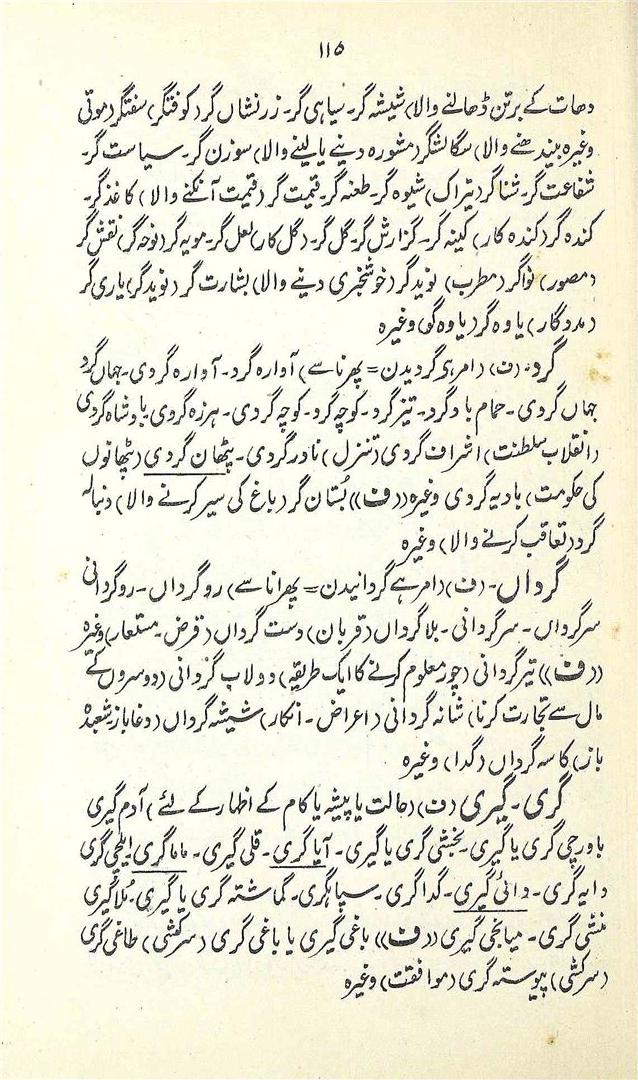 ۱۱۵
دھات کے برتن ڈھالنے والا) شیشہ گر۔ سیاہی گر۔ زرنشاں گر (کوفتگر) سفتگر (موتی
وغیرہ بیندھنے والا) سگالشگر (مشورہ دینے یا لینے والا) سوزن گر۔ سیاست گر۔
شفاعت گر۔ شناگر (تیراک) شیوہ گر۔ طعنہ گر۔ قیمت گر (قیمت آنکنے والا) کاغذگر۔
کندہ گر (کندہ کار) کینہ گر۔ گزارش گر۔ گل گر۔ (گل کار) لعل گر۔ مویہ گر (نوحہ گر) نقش گر
(مصور) نواگر (مطرب) نویدگر (خوشخبری دینے والا) بشارت گر (نویدگر) یاری گر
(مددگار) یاوہ گر (یاوہ گو) وغیرہ
گرد۔ (ف) (امر ہے گردیدن = پھرنا سے) آوارہ گرد۔ آوارہ گردی۔ جہاں گرد
جہاں گردی۔ حمام بادگرد۔ تیز گرد۔ کوچہ گرد۔ کوچہ گردی۔ ہرزہ گردی بادشاہ گردی
(انقلاب سلطنت) اشراف گردی (تنزل) نادر گردی۔ پٹھان گردی (پٹھانوں
کی حکومت) بادیہ گردی وغیرہ ((ف)) بُستان گر (باغ کی سیر کرنے والا) دنبالہ
گرد (تعاقب کرنے والا) وغیرہ
گرداں۔ (ف) (امر ہے گردانیدن = پھرانا سے) روگرداں۔ روگردانی
سرگرداں۔ سرگردانی۔ بلاگرداں (قربان) دست گرداں (قرض۔ مستعار) وغیرہ
((ف)) تیرگردانی (چور معلوم کرنے کا ایک طریقہ) دولاب گردانی (دوسروں کے
مال سے تجارت کرنا) شانہ گردانی (اعراض۔ انکار) شیشہ گرداں (دغاباز شعبدہ
باز) کاسہ گرداں (گدا) وغیرہ
گری۔ گیری (ف) (حالت یا پیشہ یا کام کے اظہار کے لئے) آدم گیری
باورچی گری یا گیری۔ بخشی گری یا گیری۔ آیا گری۔ قلی گیری۔ ماما گری ایلچی گری
دایہ گری۔ دائی گیری۔ گداگری۔ سپاہگری۔ گماشتہ گری یا گیری۔ مُلاگیری
منشی گری۔ میانجی گیری ((ف)) باغی گیری یا باغی گری (سرکشی) طاغی گری
(سرکشی) پیوستہ گری (موافقت) وغیرہ